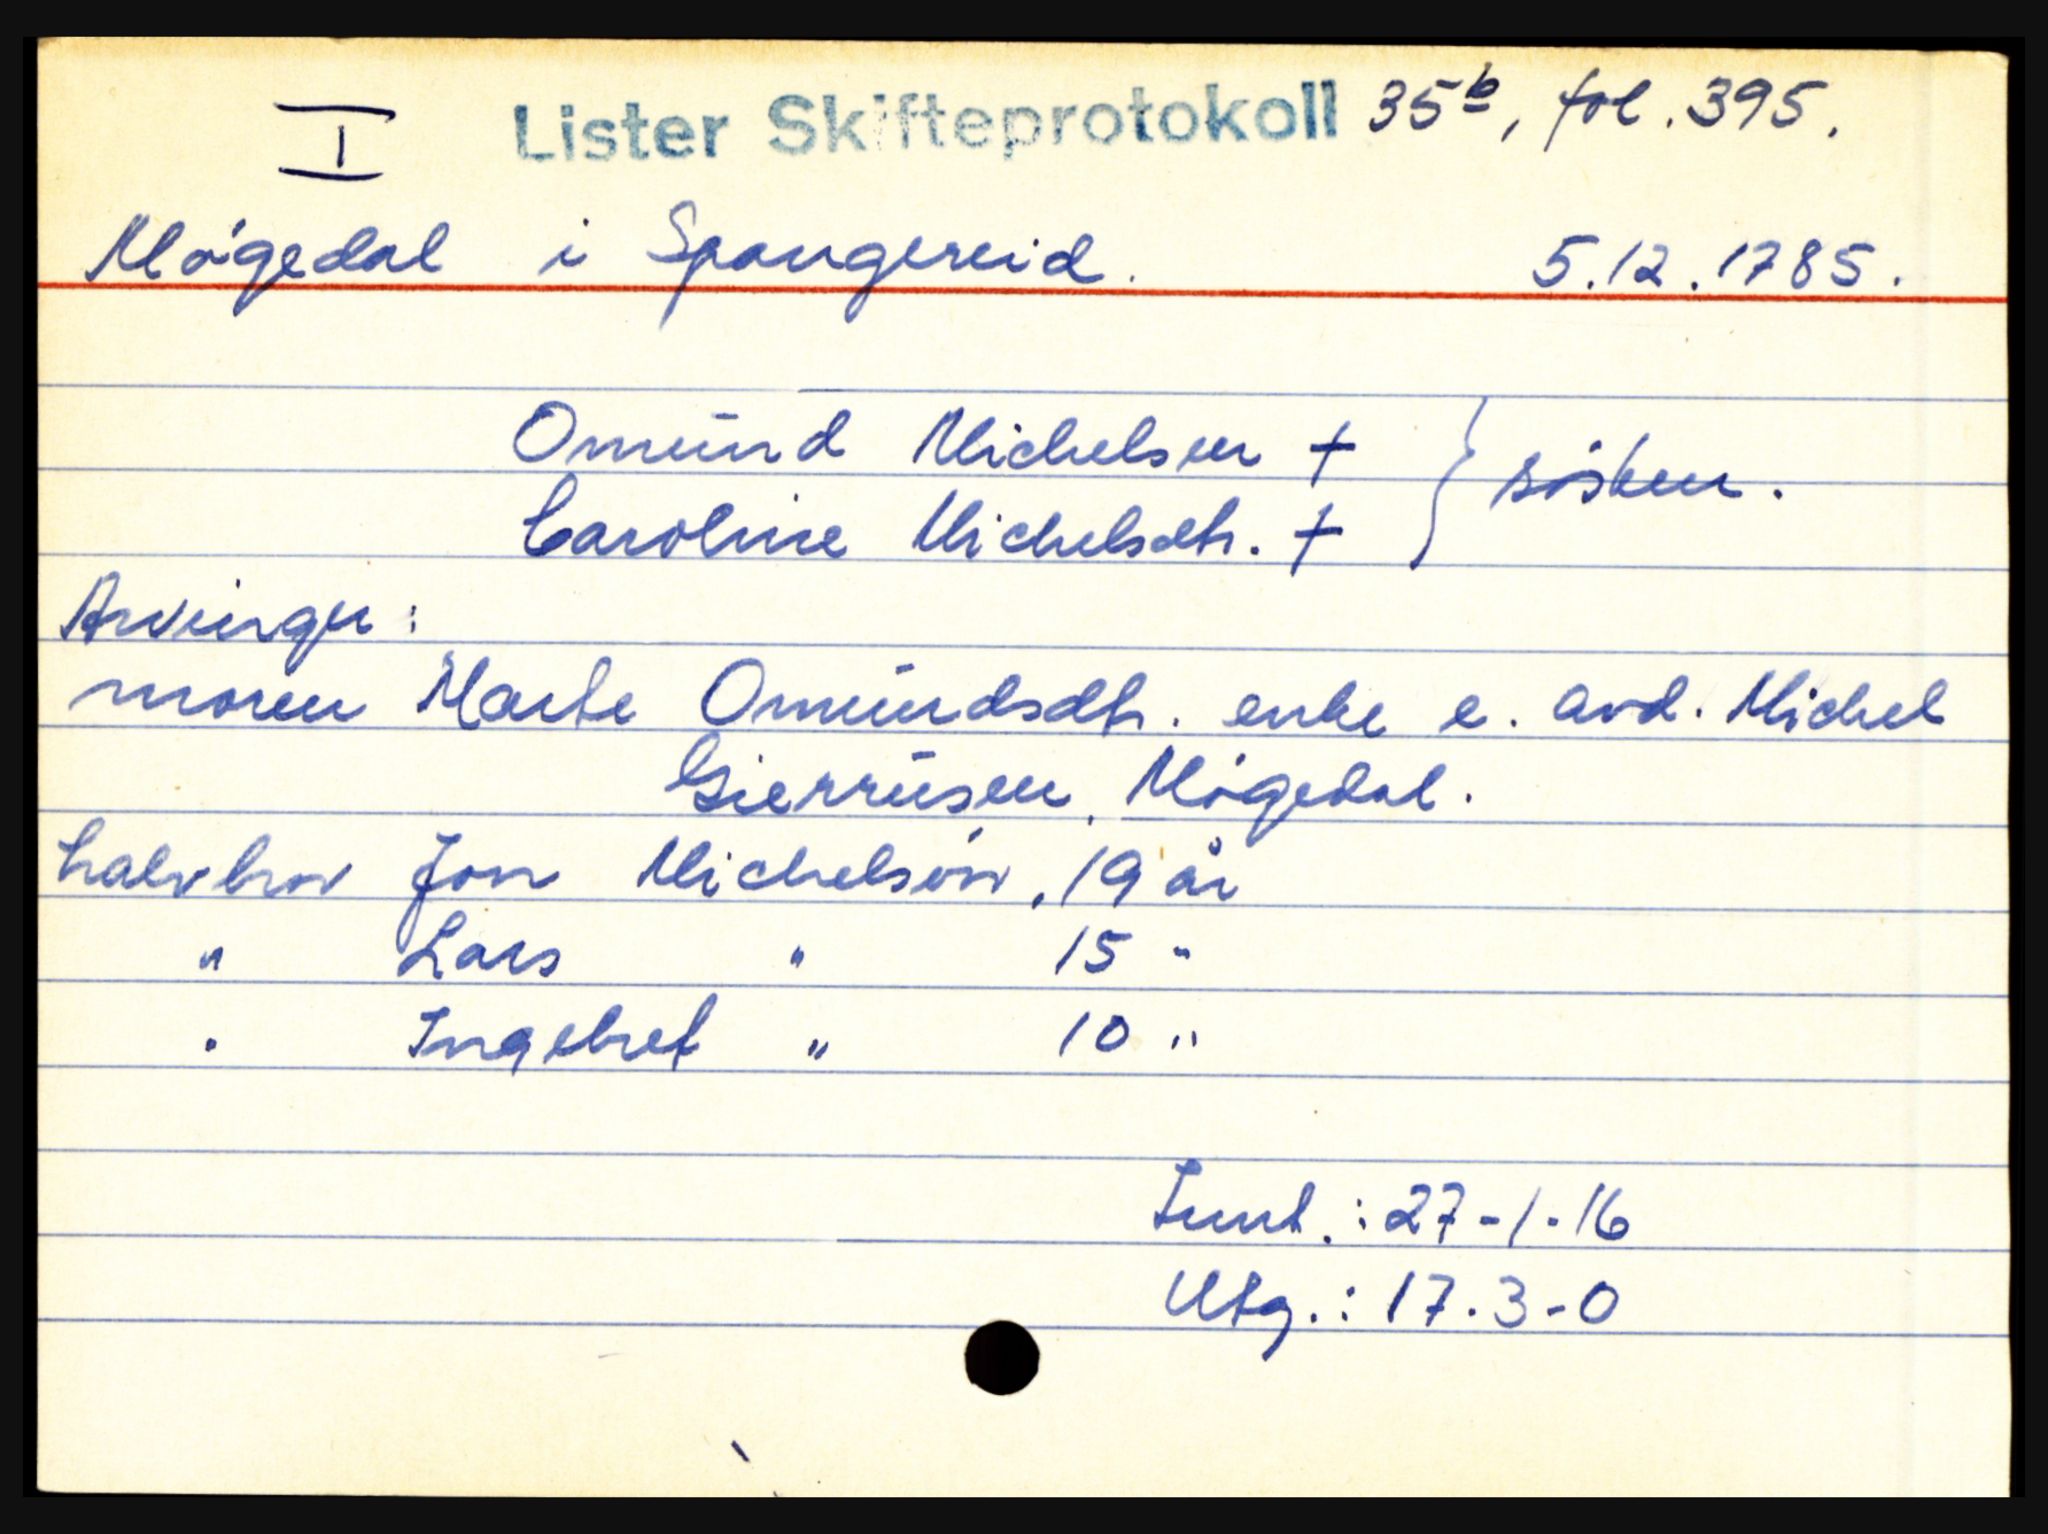 I Lister Skifteprotokoll 35b, fol. 395.
Mögedal i Spangereid. 5.12.1785.
Omund Michelsen †
sösken.
Caroline Michelsdtr. †
Arvinger:
moren Marte Omundsdtr. enke e. avd. Michel
Gierrusen, Mögedal.
halvbror Jon Michelsön, 19 år
" Lars " 15 "
" Ingebret " 10 "
Innt.: 27-1-16
Utg.: 17-3-0